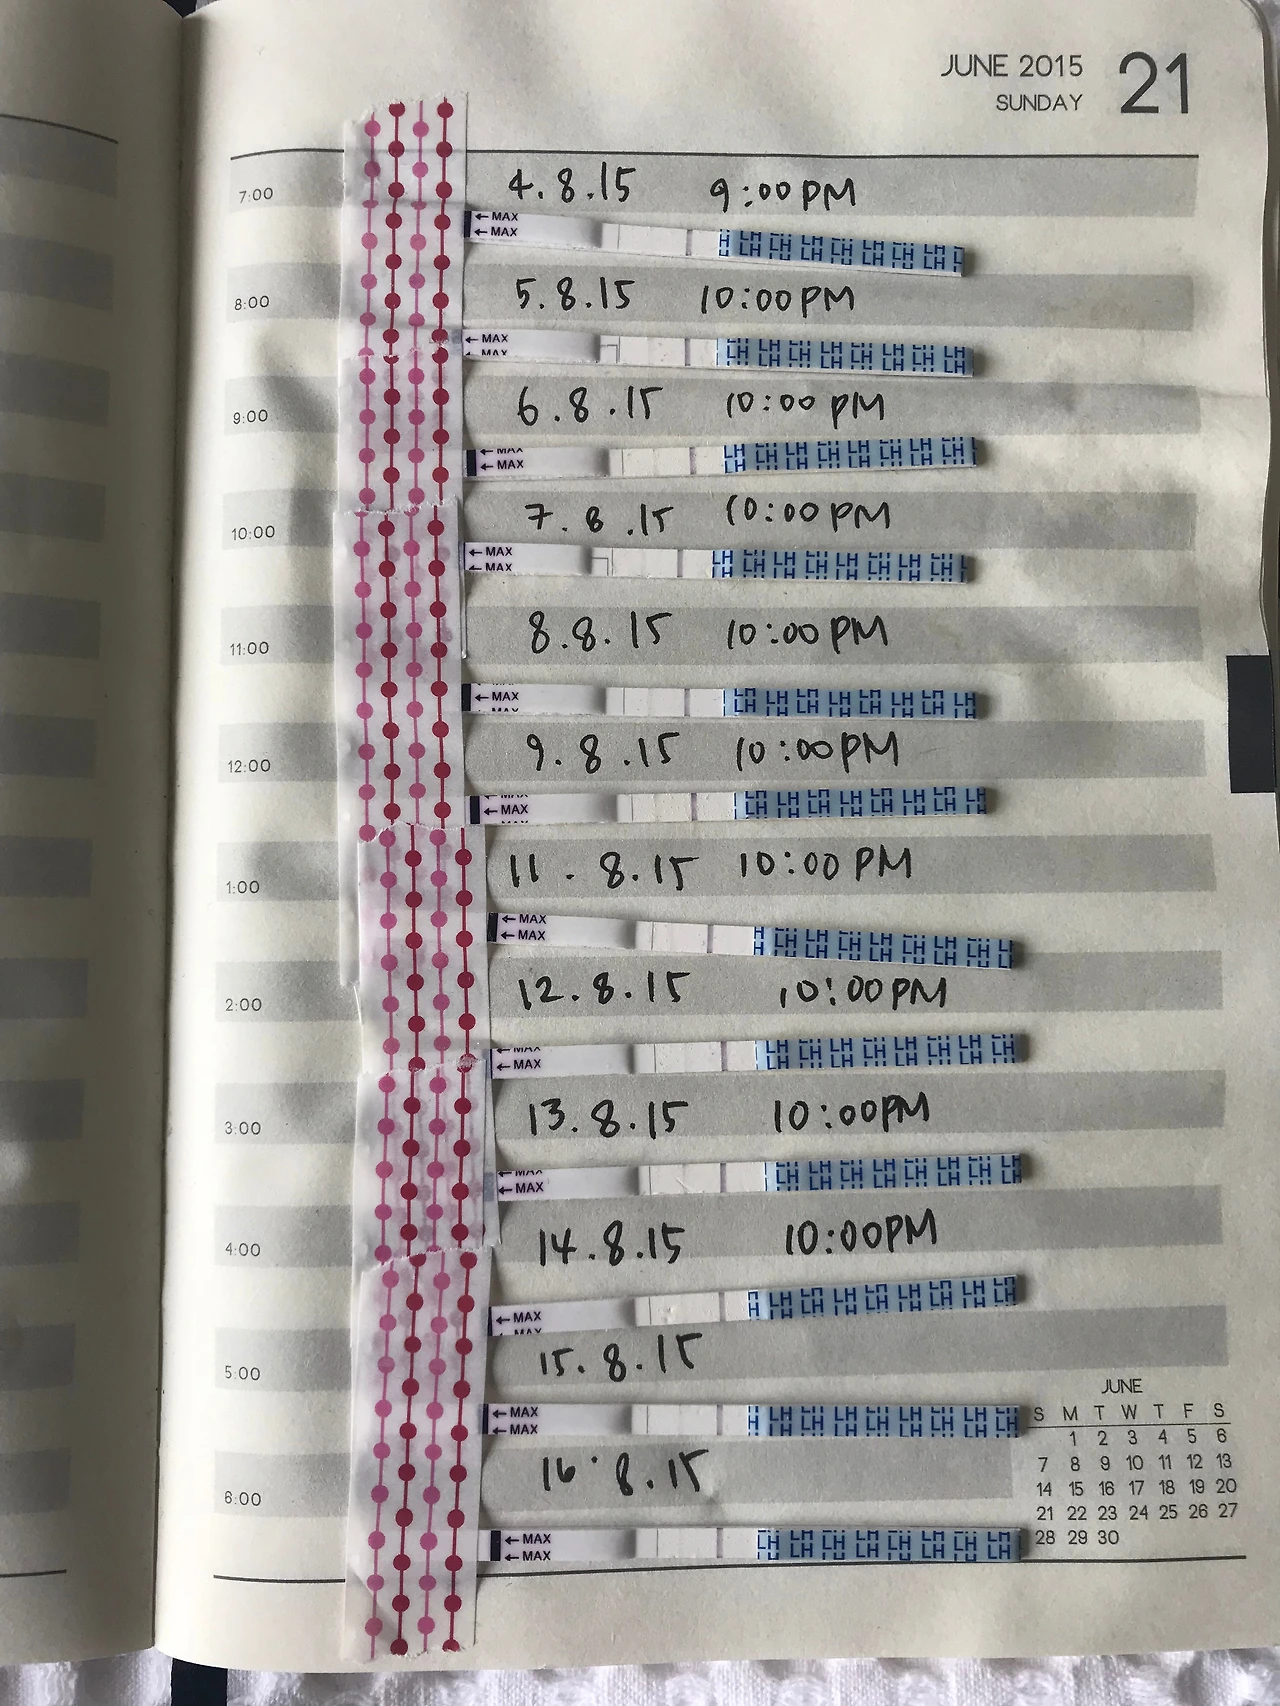 JUNE 2015 21
SUNDAY
7:00 4.8.15 9:00PM
← MAX
← MAX
LH LH LH LH LH LH LH
8:00 5.8.15 10:00PM
← MAX
← MAX
LH LH LH LH LH LH LH LH
9:00 6.8.15 10:00PM
← MAX
← MAX
LH LH LH LH LH LH LH LH
10:00 7.8.15 10:00PM
← MAX
← MAX
LH LH LH LH LH LH LH
11:00 8.8.15 10:00PM
← MAX
LH LH LH LH LH LH LH LH
12:00 9.8.15 10:00PM
← MAX
← MAX
LH LH LH LH LH LH LH LH
1:00 11.8.15 10:00PM
← MAX
← MAX
LH LH LH LH LH LH LH
2:00 12.8.15 10:00PM
← MAX
← MAX
LH LH LH LH LH LH LH LH
3:00 13.8.15 10:00PM
← MAX
← MAX
LH LH LH LH LH LH LH LH
4:00 14.8.15 10:00PM
← MAX
← MAX
LH LH LH LH LH LH LH LH
5:00 15.8.15
← MAX
← MAX
LH LH LH LH LH LH LH LH
6:00 16.8.15
← MAX
← MAX
LH LH LH LH LH LH LH LH
JUNE
S M T W T F S
1 2 3 4 5 6
7 8 9 10 11 12 13
14 15 16 17 18 19 20
21 22 23 24 25 26 27
28 29 30